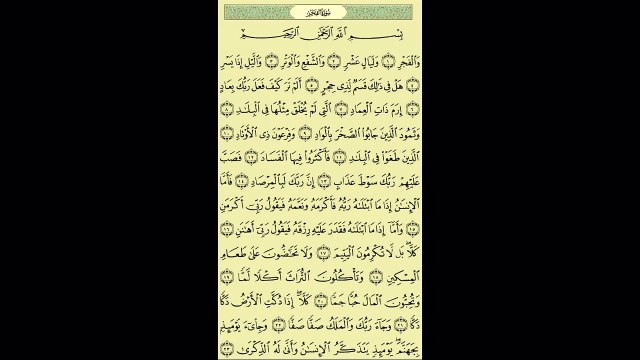 سورة الفجر
بِسْمِ اللَّهِ الرَّحْمَٰنِ الرَّحِيمِ
وَالْفَجْرِ ۝١ وَلَيَالٍ عَشْرٍ ۝٢ وَالشَّفْعِ وَالْوَتْرِ ۝٣ وَاللَّيْلِ إِذَا يَسْرِ
۝٤ هَلْ فِي ذَٰلِكَ قَسَمٌ لِّذِي حِجْرٍ ۝٥ أَلَمْ تَرَ كَيْفَ فَعَلَ رَبُّكَ بِعَادٍ
۝٦ إِرَمَ ذَاتِ الْعِمَادِ ۝٧ الَّتِي لَمْ يُخْلَقْ مِثْلُهَا فِي الْبِلَٰدِ ۝٨
وَثَمُودَ الَّذِينَ جَابُوا الصَّخْرَ بِالْوَادِ ۝٩ وَفِرْعَوْنَ ذِي الْأَوْتَادِ ۝١٠
الَّذِينَ طَغَوْا فِي الْبِلَٰدِ ۝١١ فَأَكْثَرُوا فِيهَا الْفَسَادَ ۝١٢ فَصَبَّ
عَلَيْهِمْ رَبُّكَ سَوْطَ عَذَابٍ ۝١٣ إِنَّ رَبَّكَ لَبِالْمِرْصَادِ ۝١٤ فَأَمَّا
الْإِنسَٰنُ إِذَا مَا ابْتَلَىٰهُ رَبُّهُ فَأَكْرَمَهُ وَنَعَّمَهُ فَيَقُولُ رَبِّي أَكْرَمَنِ
۝١٥ وَأَمَّا إِذَا مَا ابْتَلَىٰهُ فَقَدَرَ عَلَيْهِ رِزْقَهُ فَيَقُولُ رَبِّي أَهَٰنَنِ ۝١٦
كَلَّا ۖ بَل لَّا تُكْرِمُونَ الْيَتِيمَ ۝١٧ وَلَا تَحَٰضُّونَ عَلَىٰ طَعَامِ
الْمِسْكِينِ ۝١٨ وَتَأْكُلُونَ التُّرَاثَ أَكْلًا لَّمًّا ۝١٩
وَتُحِبُّونَ الْمَالَ حُبًّا جَمًّا ۝٢٠ كَلَّا ۖ إِذَا دُكَّتِ الْأَرْضُ دَكًّا
دَكًّا ۝٢١ وَجَاءَ رَبُّكَ وَالْمَلَكُ صَفًّا صَفًّا ۝٢٢ وَجِا۟يءَ يَوْمَئِذٍ
بِجَهَنَّمَ ۚ يَوْمَئِذٍ يَتَذَكَّرُ الْإِنسَٰنُ وَأَنَّىٰ لَهُ الذِّكْرَىٰ ۝٢٣